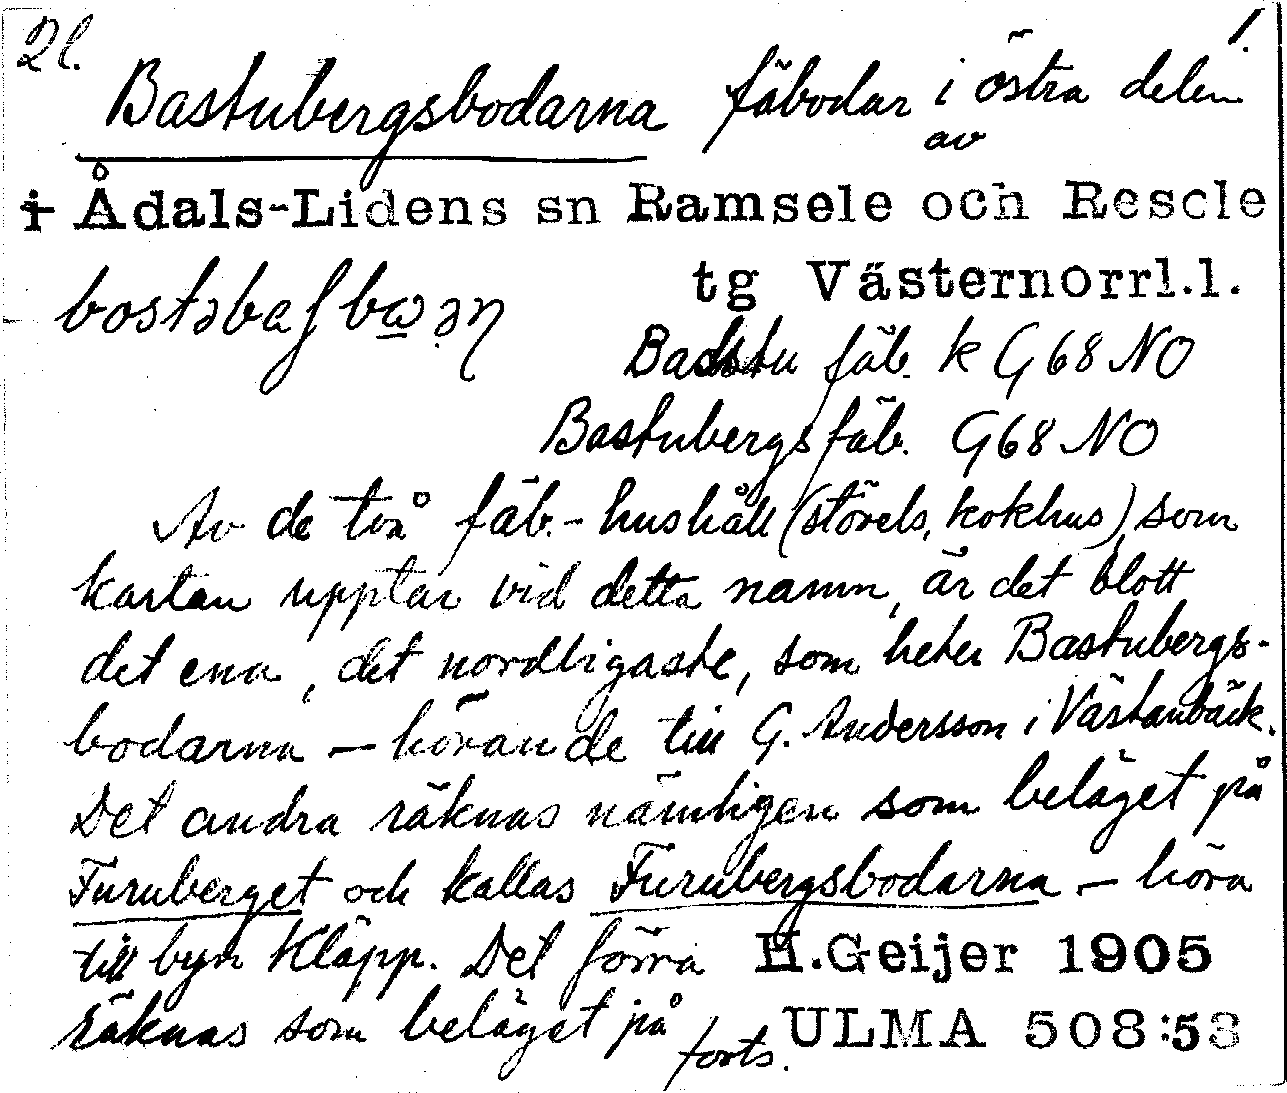 2l. 1.
Bastubergsbodarna fäbodar i östra delen
av
i Ådals-Lidens sn Ramsele och Resele
tg Västernorrl.l.
Badstu fäb. k G68 NO
Bastubergsfäb. G68 NO
Av de två fäb.-hushåll (störels, kokhus), som
kartan upptar vid detta namn, är det blott
det ena, det nordligaste, som heter Bastubergs-
bodarna – hörande till G. Andersson i Västanbäck.
Det andra räknas nämligen som beläget på
Furuberget och kallas Furubergsbodarna – höra
till byn Kläpp. Det förra H.Geijer 1905
räknas som beläget på forts. ULMA 508:53